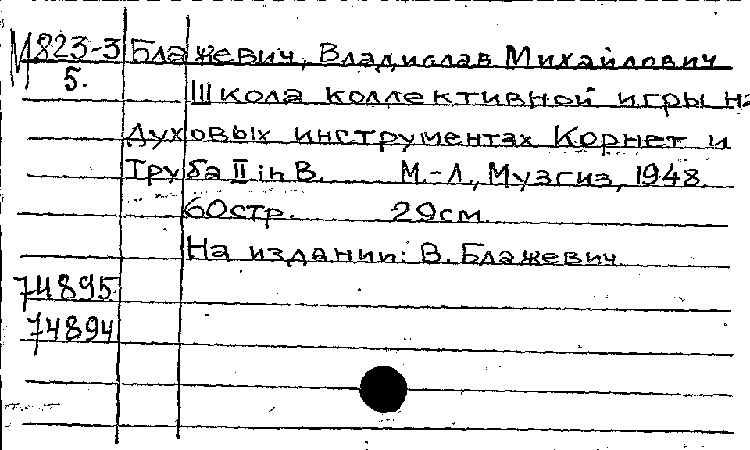 М823-3 Блажевич, Владислав Михайлович
5.
Школа коллективной игры на
духовых инструментах Корнет и
Труба II in B. М.-Л., Музгиз, 1948.
60стр. 29см.
На издании: В. Блажевич.
74895
74894